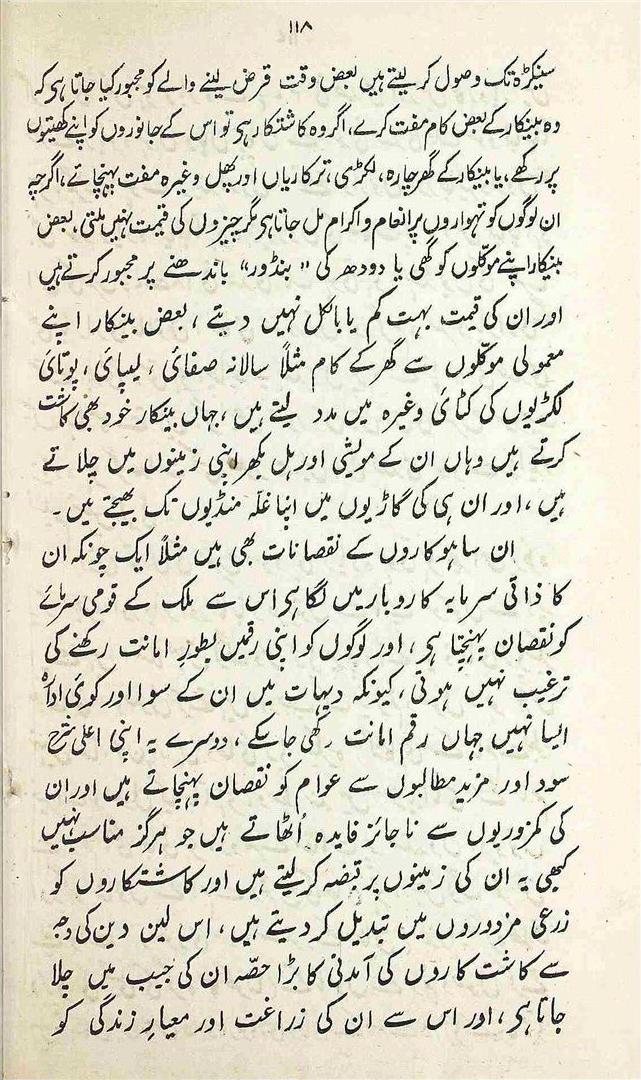 ۱۱۸
سینکڑہ تک وصول کر لیتے ہیں بعض وقت قرض لینے والے کو مجبور کیا جاتا ہی کہ
وہ بینکار کے بعض کام مفت کرے، اگر وہ کاشتکار ہی تو اس کے جانوروں کو اپنے کھیتوں
پر رکھے، یا بینکار کے گھر چارہ، لکڑی، ترکاریاں اور پھل وغیرہ مفت پہنچائے، اگرچہ
ان لوگوں کو تہواروں پر انعام و اکرام مل جاتا ہی مگر چیزوں کی قیمت نہیں ملتی، بعض
بینکار اپنے موکلوں کو گھی یا دودھ کی "بنڈور" باندھنے پر مجبور کرتے ہیں
اور ان کی قیمت بہت کم یا بالکل نہیں دیتے، بعض بینکار اپنے
معمولی موکلوں سے گھر کے کام مثلاً سالانہ صفائی، لیپائی، پوتائی
لکڑیوں کی کٹائی وغیرہ میں مدد لیتے ہیں، جہاں بینکار خود بھی کاشت
کرتے ہیں وہاں ان کے مویشی اور ہل بکھر اپنی زمینوں میں چلاتے
ہیں، اور ان ہی کی گاڑیوں میں اپنا غلّہ منڈیوں تک بھیجتے ہیں۔
ان ساہوکاروں کے نقصانات بھی ہیں مثلاً ایک چونکہ ان
کا ذاتی سرمایہ کاروبار میں لگا ہی اس سے ملک کے قومی سرمائے
کو نقصان پہنچتا ہی، اور لوگوں کو اپنی رقمیں بطور امانت رکھنے کی
ترغیب نہیں ہوتی، کیونکہ دیہات میں ان کے سوا اور کوئی ادارہ
ایسا نہیں جہاں رقم امانت رکھی جا سکے، دوسرے یہ اپنی اعلیٰ شرح
سود اور مزید مطالبوں سے عوام کو نقصان پہنچاتے ہیں اور ان
کی کمزوریوں سے ناجائز فایدہ اُٹھاتے ہیں جو ہرگز مناسب نہیں
کبھی یہ ان کی زمینوں پر قبضہ کر لیتے ہیں اور کاشتکاروں کو
زرعی مزدوروں میں تبدیل کر دیتے ہیں، اس لین دین کی وجہ
سے کاشت کاروں کی آمدنی کا بڑا حصّہ ان کی جیب میں چلا
جاتا ہی، اور اس سے ان کی زراعت اور معیارِ زندگی کو